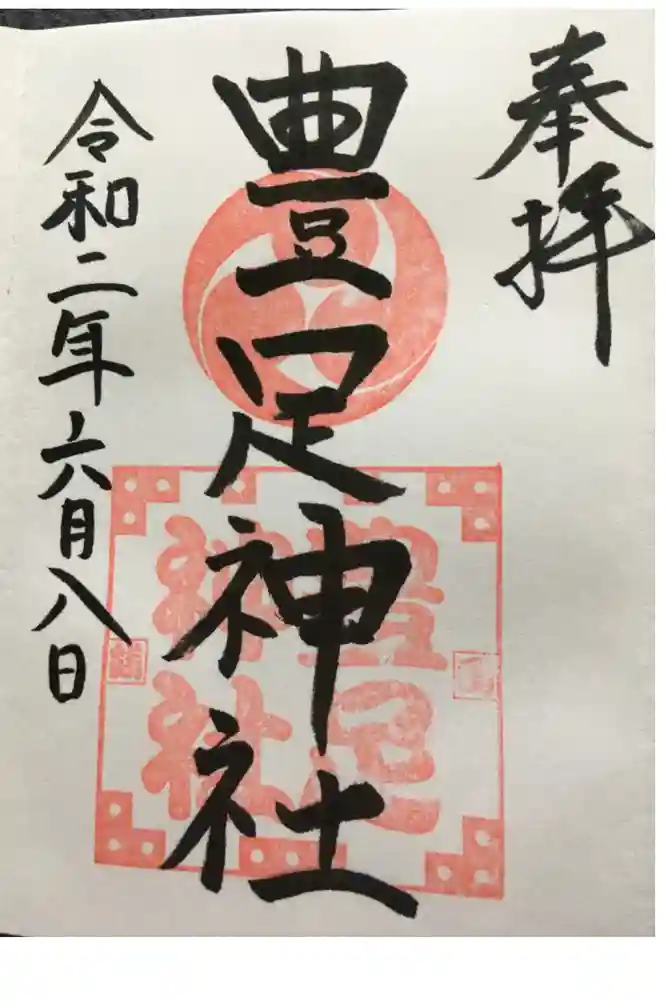 奉拝
豊足神社
豊足
神社
令和二年六月八日